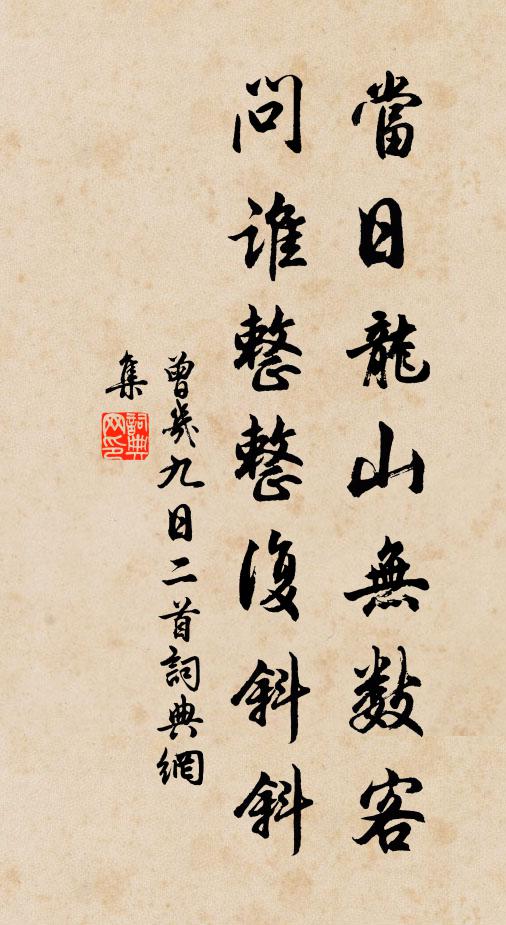 當日龍山無數客
問誰整整復斜斜
曾幾九日二首詞典網
集
詞典
网印